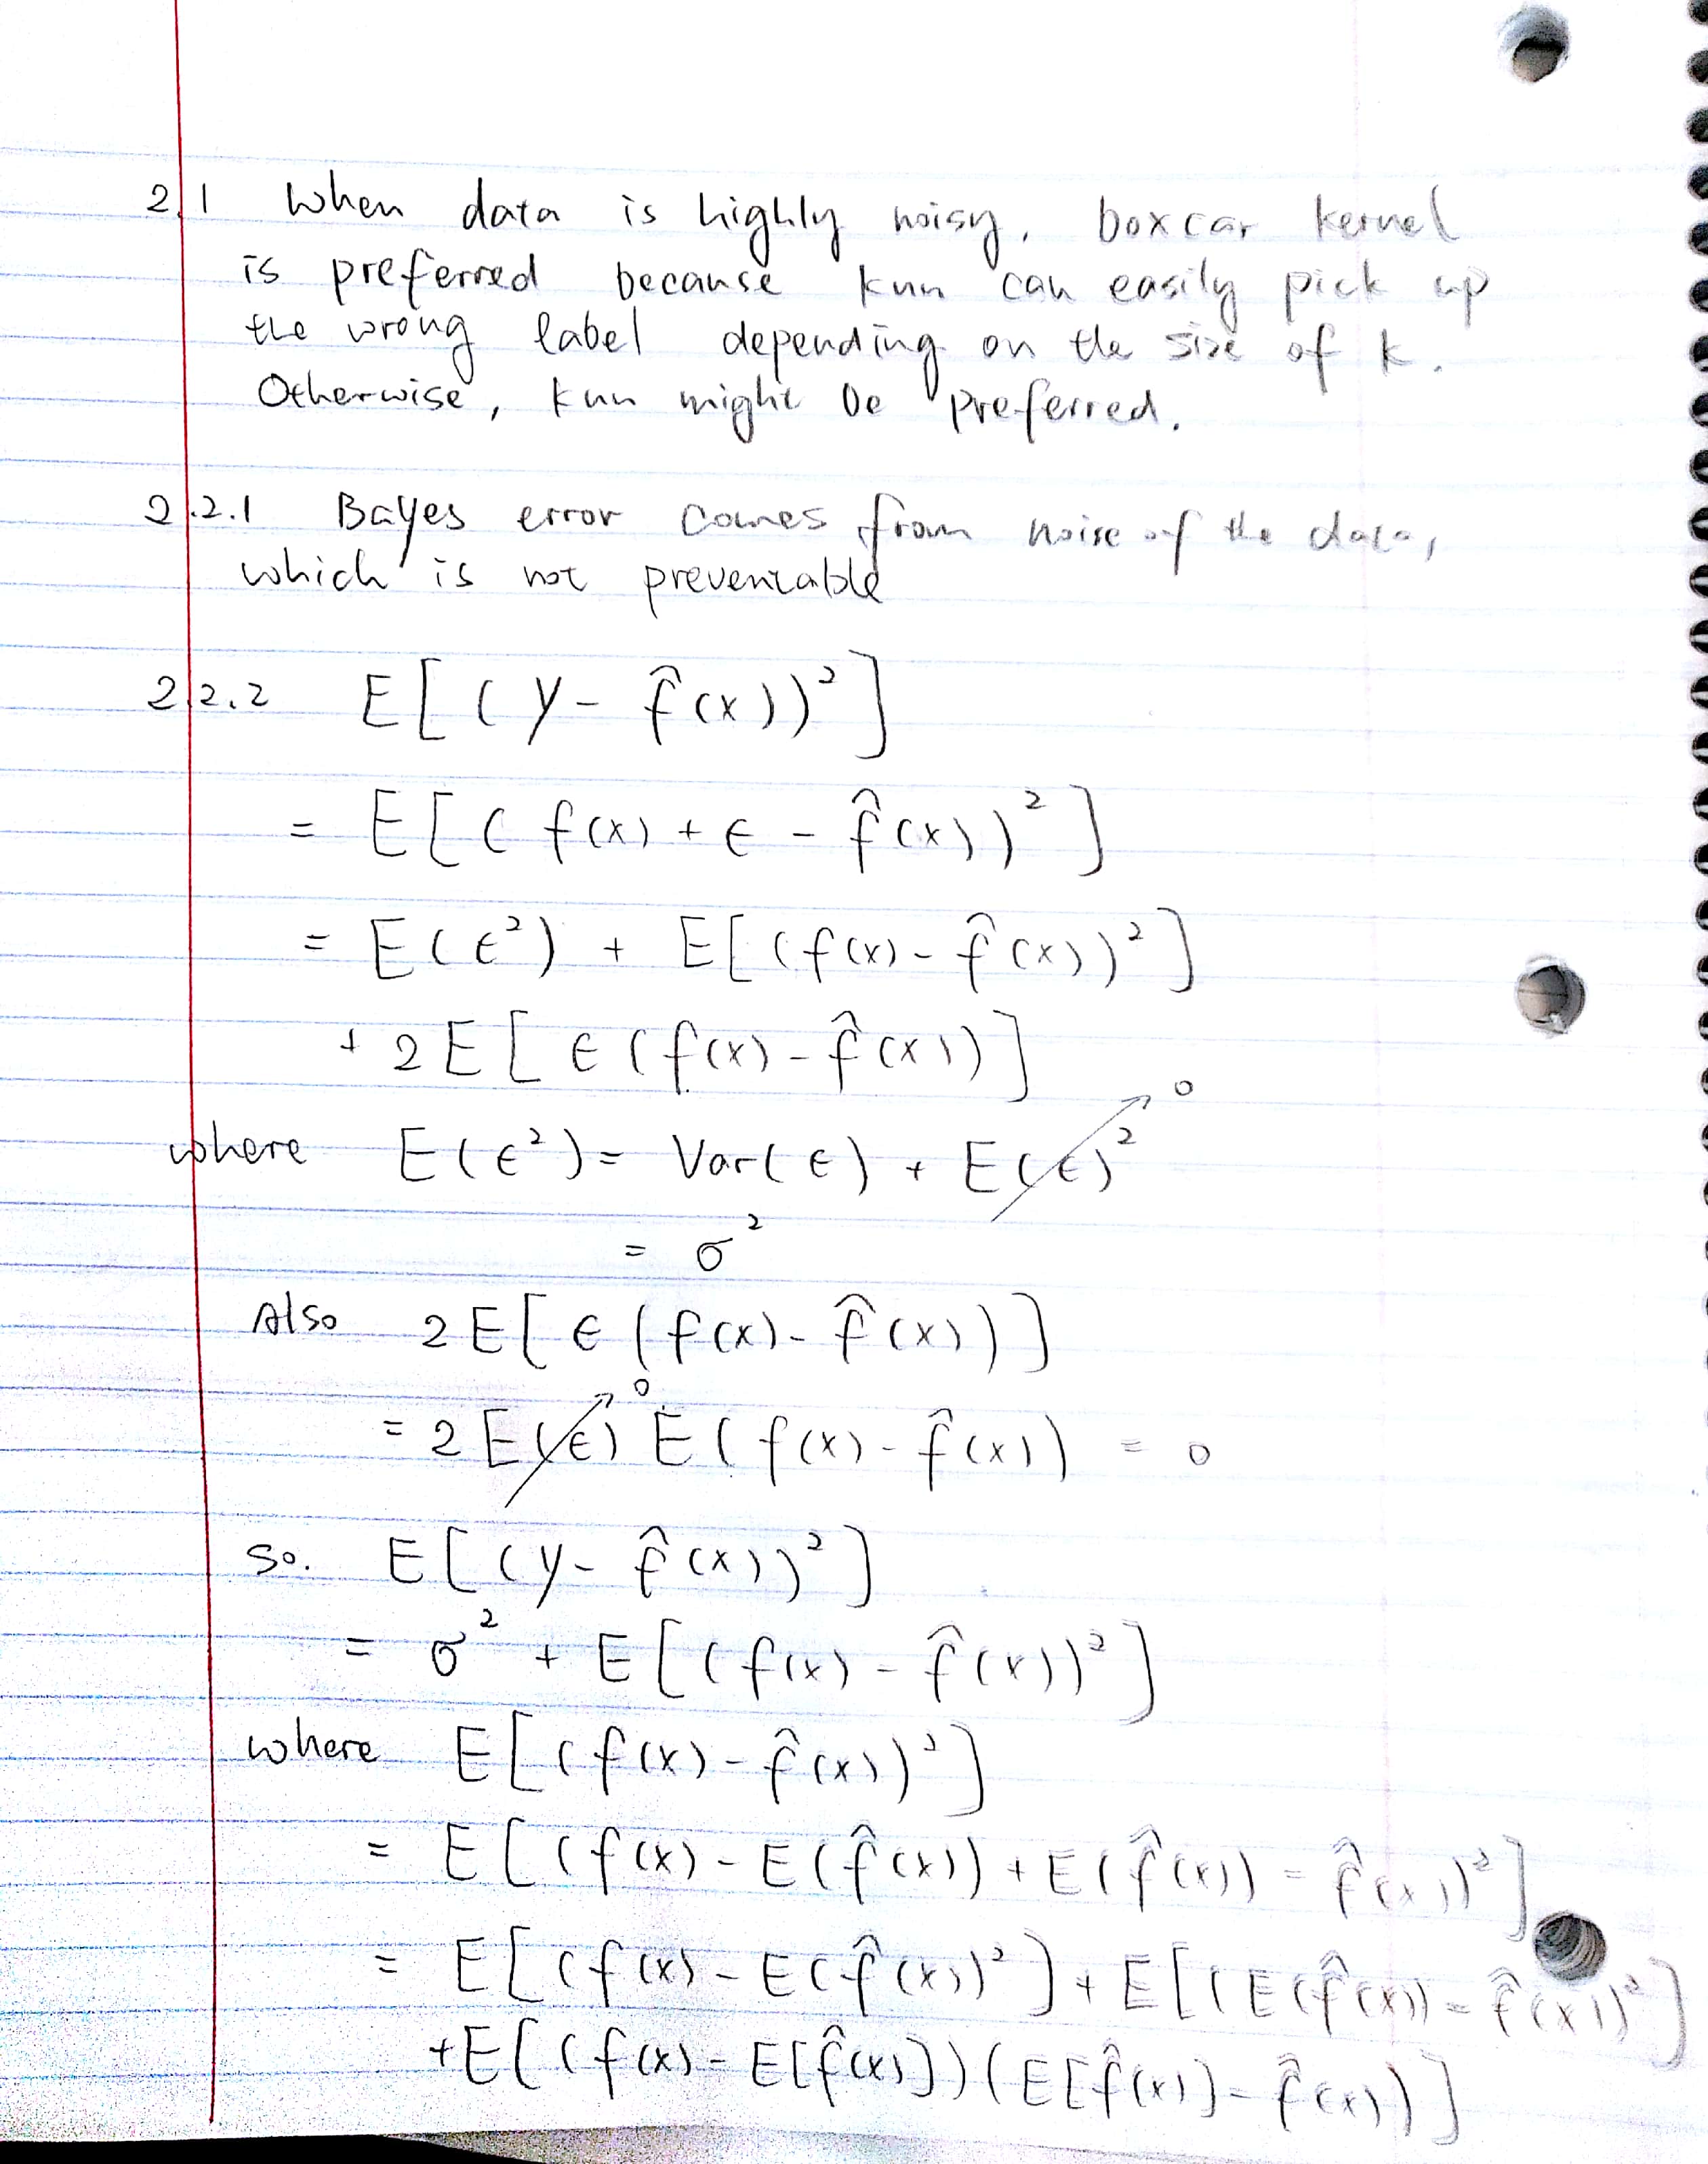 2.1 When data is highly noisy, boxcar kernel
is preferred because knn can easily pick up
the wrong label depending on the size of k.
Otherwise, knn might be preferred.
2.2.1 Bayes error comes from noise of the data,
which is not preventable
2.2.2 E[(y - f̂(x))²]
= E[(f(x) + ϵ - f̂(x))²]
= E(ϵ²) + E[(f(x) - f̂(x))²]
+ 2E[ϵ(f(x) - f̂(x))]
where E(ϵ²) = Var(ϵ) + E(ϵ)² → 0
= σ²
Also 2E[ϵ(f(x) - f̂(x))]
= 2E(ϵ) → 0 E(f(x) - f̂(x)) = 0
So. E[(y - f̂(x))²]
= σ² + E[(f(x) - f̂(x))²]
where E[(f(x) - f̂(x))²]
= E[(f(x) - E(f̂(x)) + E(f̂(x)) - f̂(x))²]
= E[(f(x) - E(f̂(x))²] + E[(E(f̂(x)) - f̂(x))²]
+E[(f(x) - E[f̂(x)])(E[f̂(x)] - f̂(x))]